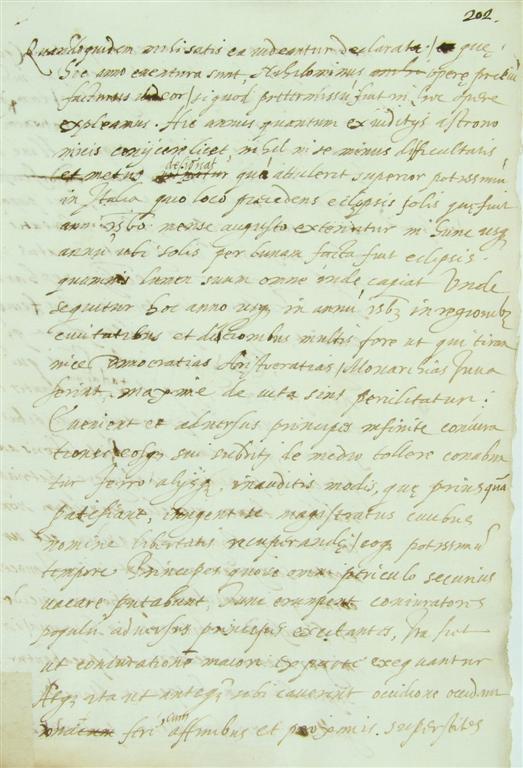 202.
Quandoquidem mihi satis ea videantur declarata / quę
hoc anno eventura sunt, Nihilominus operę precium
facturus videor / si quod pretermissum fuit in hoc opere
expleamus. Hic annus quantum ex iuditijs astrono
micis conijcere licet, nihil in se minus difficultatis
et metus designat quā attulerit superior potissimū
in Italia quo loco precedens eclypsis solis quę fuit
anni 1560 mense augusto extenditur in hunc usq
annū ubi solis per lunam facta fuit eclipsis.
quamvis lumen suum omne inde capiat Unde
sequitur hoc anno usq in annū 1563 in regionibz
civitatibus et dicionibus multis fore ut qui tiran
nice Democratias Aristocratias / Monarchias
maxime de vita sint periclitaturi.
Evenient et adversus principes infinite coniura
tiones eosq sui subditi de medio tollere conabun
tur ferro alijsq inauditis modis, quę priusquā
patefiant, magistratus civibus
nomine libertatis recuperandę / eoq potissimū
tempore Principes quo se omni periculo securius
vacare putabunt, tunc erumpent coniuratores
populū adversus principes excitantes, Ita fiet
ut coniurationē maiori ex parte exequantur
Atq ita ut anteq sibi caverint occidione
feri cum affinibus et proximis. superstites